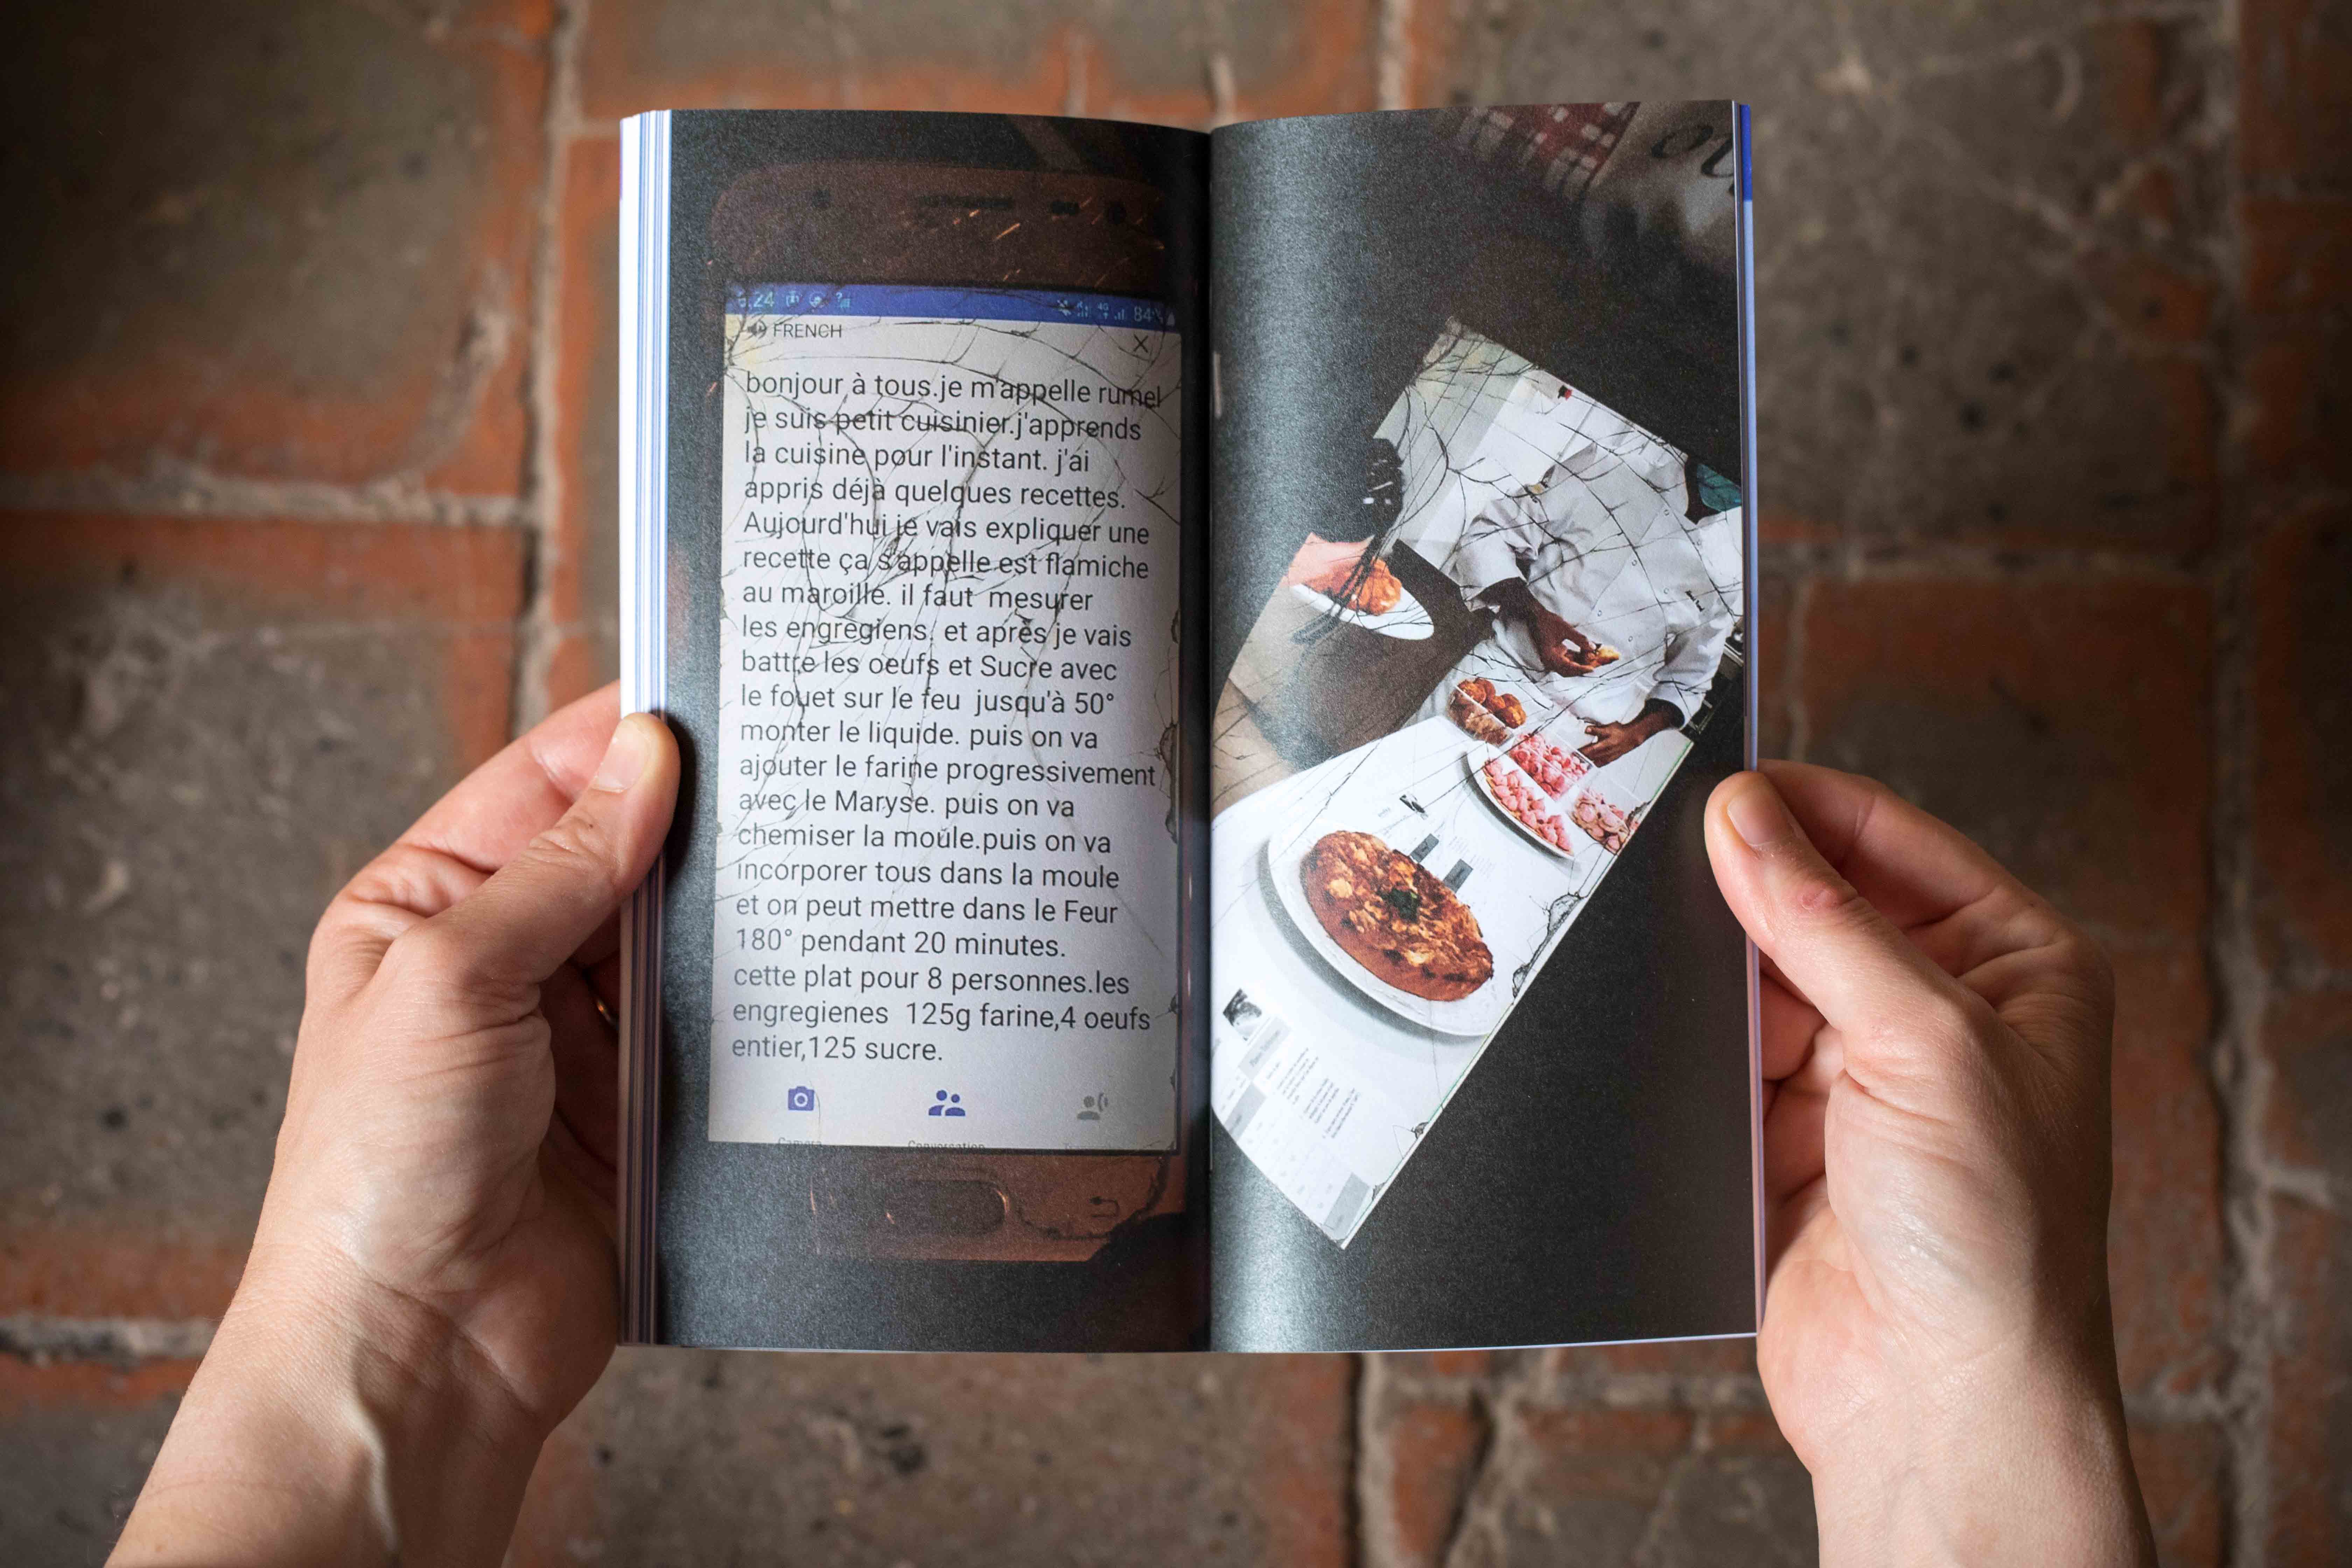 6.24 84%
FRENCH
bonjour à tous.je m'appelle rumel
je suis petit cuisinier.j'apprends
la cuisine pour l'instant. j'ai
appris déjà quelques recettes.
Aujourd'hui je vais expliquer une
recette ça s'appelle est flamiche
au maroille. il faut mesurer
les engregiens. et après je vais
battre les oeufs et Sucre avec
le fouet sur le feu jusqu'à 50°
monter le liquide. puis on va
ajouter le farine progressivement
avec le Maryse. puis on va
chemiser la moule.puis on va
incorporer tous dans la moule
et on peut mettre dans le Feur
180° pendant 20 minutes.
cette plat pour 8 personnes.les
engregienes 125g farine,4 oeufs
entier,125 sucre.
Camera Conversation